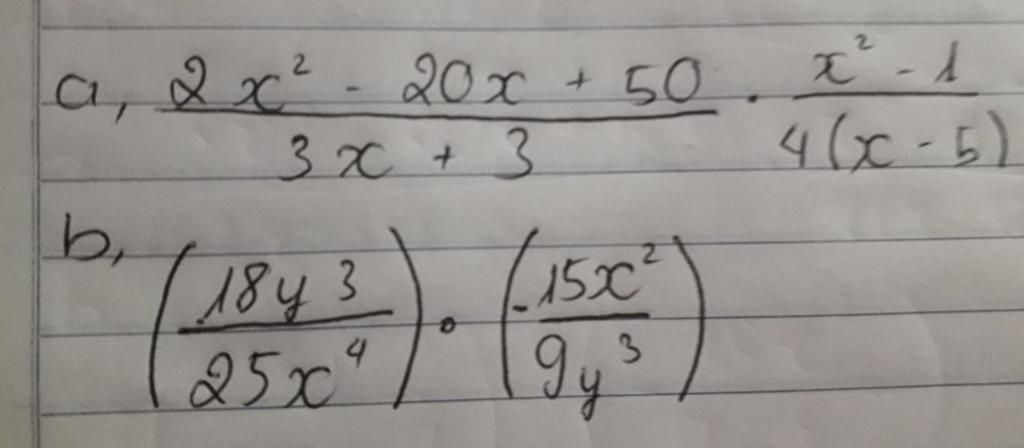 a, (2x² - 20x + 50)/(3x + 3) . (x² - 1)/(4(x - 5))
b, (18y3/25x⁴) · (-15x²/9y³)